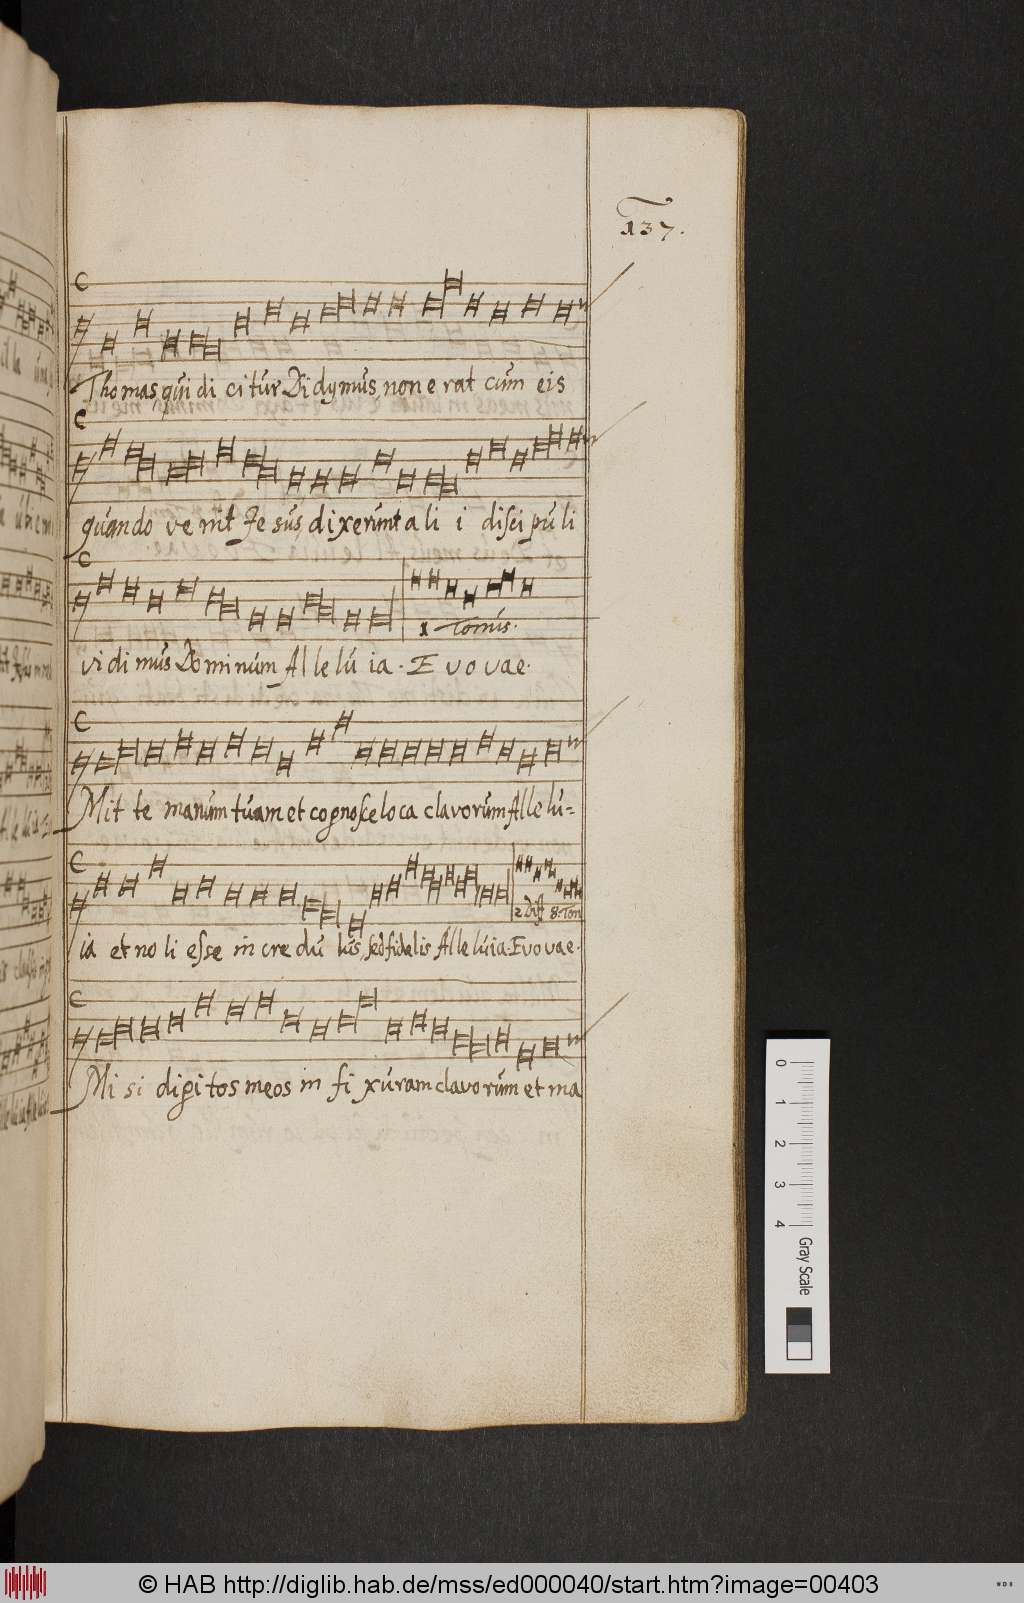 137.
Thomas, qui dicitur Didymus, non erat cum eis
quando venit Jesus, dixerunt alii discipuli
1 Tonus.
vidimus Dominum Alleluia. Evovae.
Mitte manum tuam et cognosce loca clavorum Allelu-
2 Diff 8. Ton
ia et noli esse incredulus, sed fidelis Alleluia. Evovae.
Misi digitos meos in fixuram clavorum et ma
0 1 2 3 4 Gray Scale
© HAB http://diglib.hab.de/mss/ed000040/start.htm?image=00403